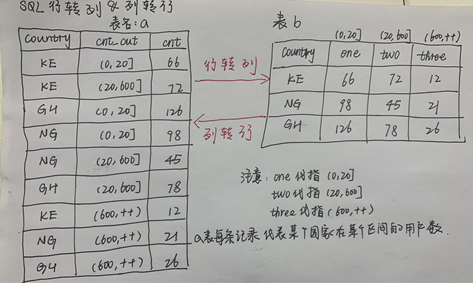 SQL 行转列 & 列转行
表名: a
Country cnt_out cnt
KE (0,20] 66
KE (20,600] 72
GH (0,20] 126
NG (0,20] 98
NG (20,600] 45
GH (20,600] 78
KE (600,++) 12
NG (600,++) 21
GH (600,++) 26
行转列
列转行
表 b
(0,20] (20,600] (600,++)
Country one two three
KE 66 72 12
NG 98 45 21
GH 126 78 26
注意: one 代指 (0,20]
two 代指 (20,600]
three 代指 (600,++)
a表每条记录代表某个国家在某个区间的用户数.